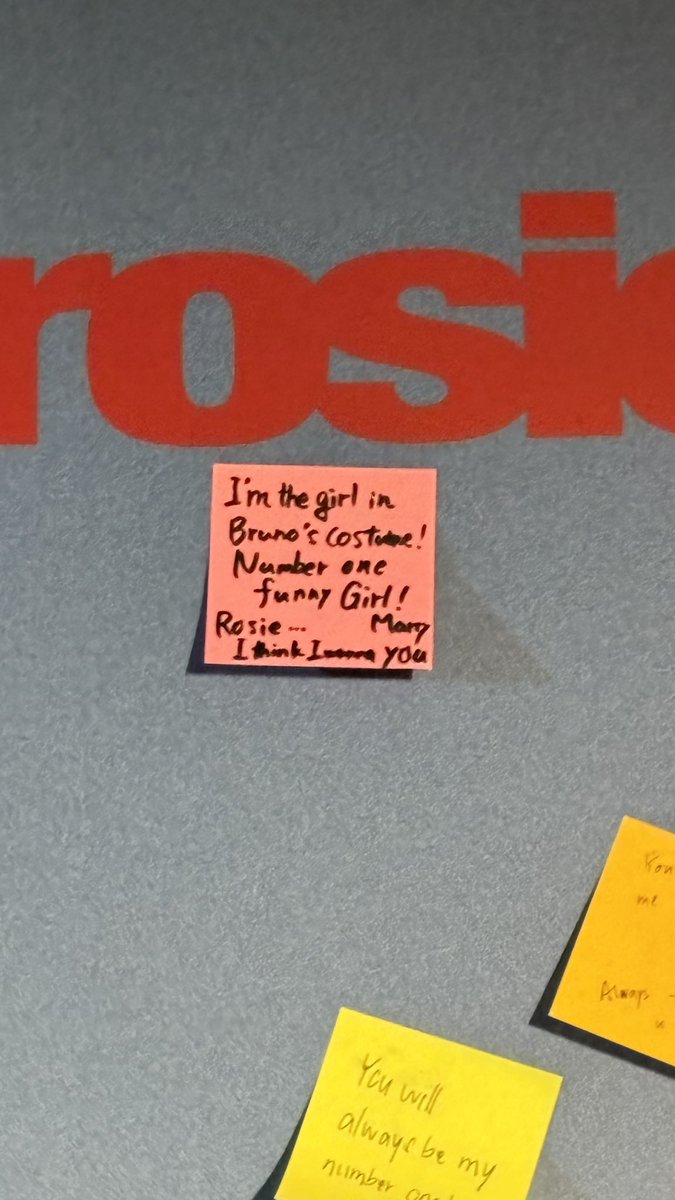 rosie
I'm the girl in
Bruno's costume!
Number one
funny Girl!
Rosie... Marry
I think I wanna you
You
me
Always
You will
always be my
number one